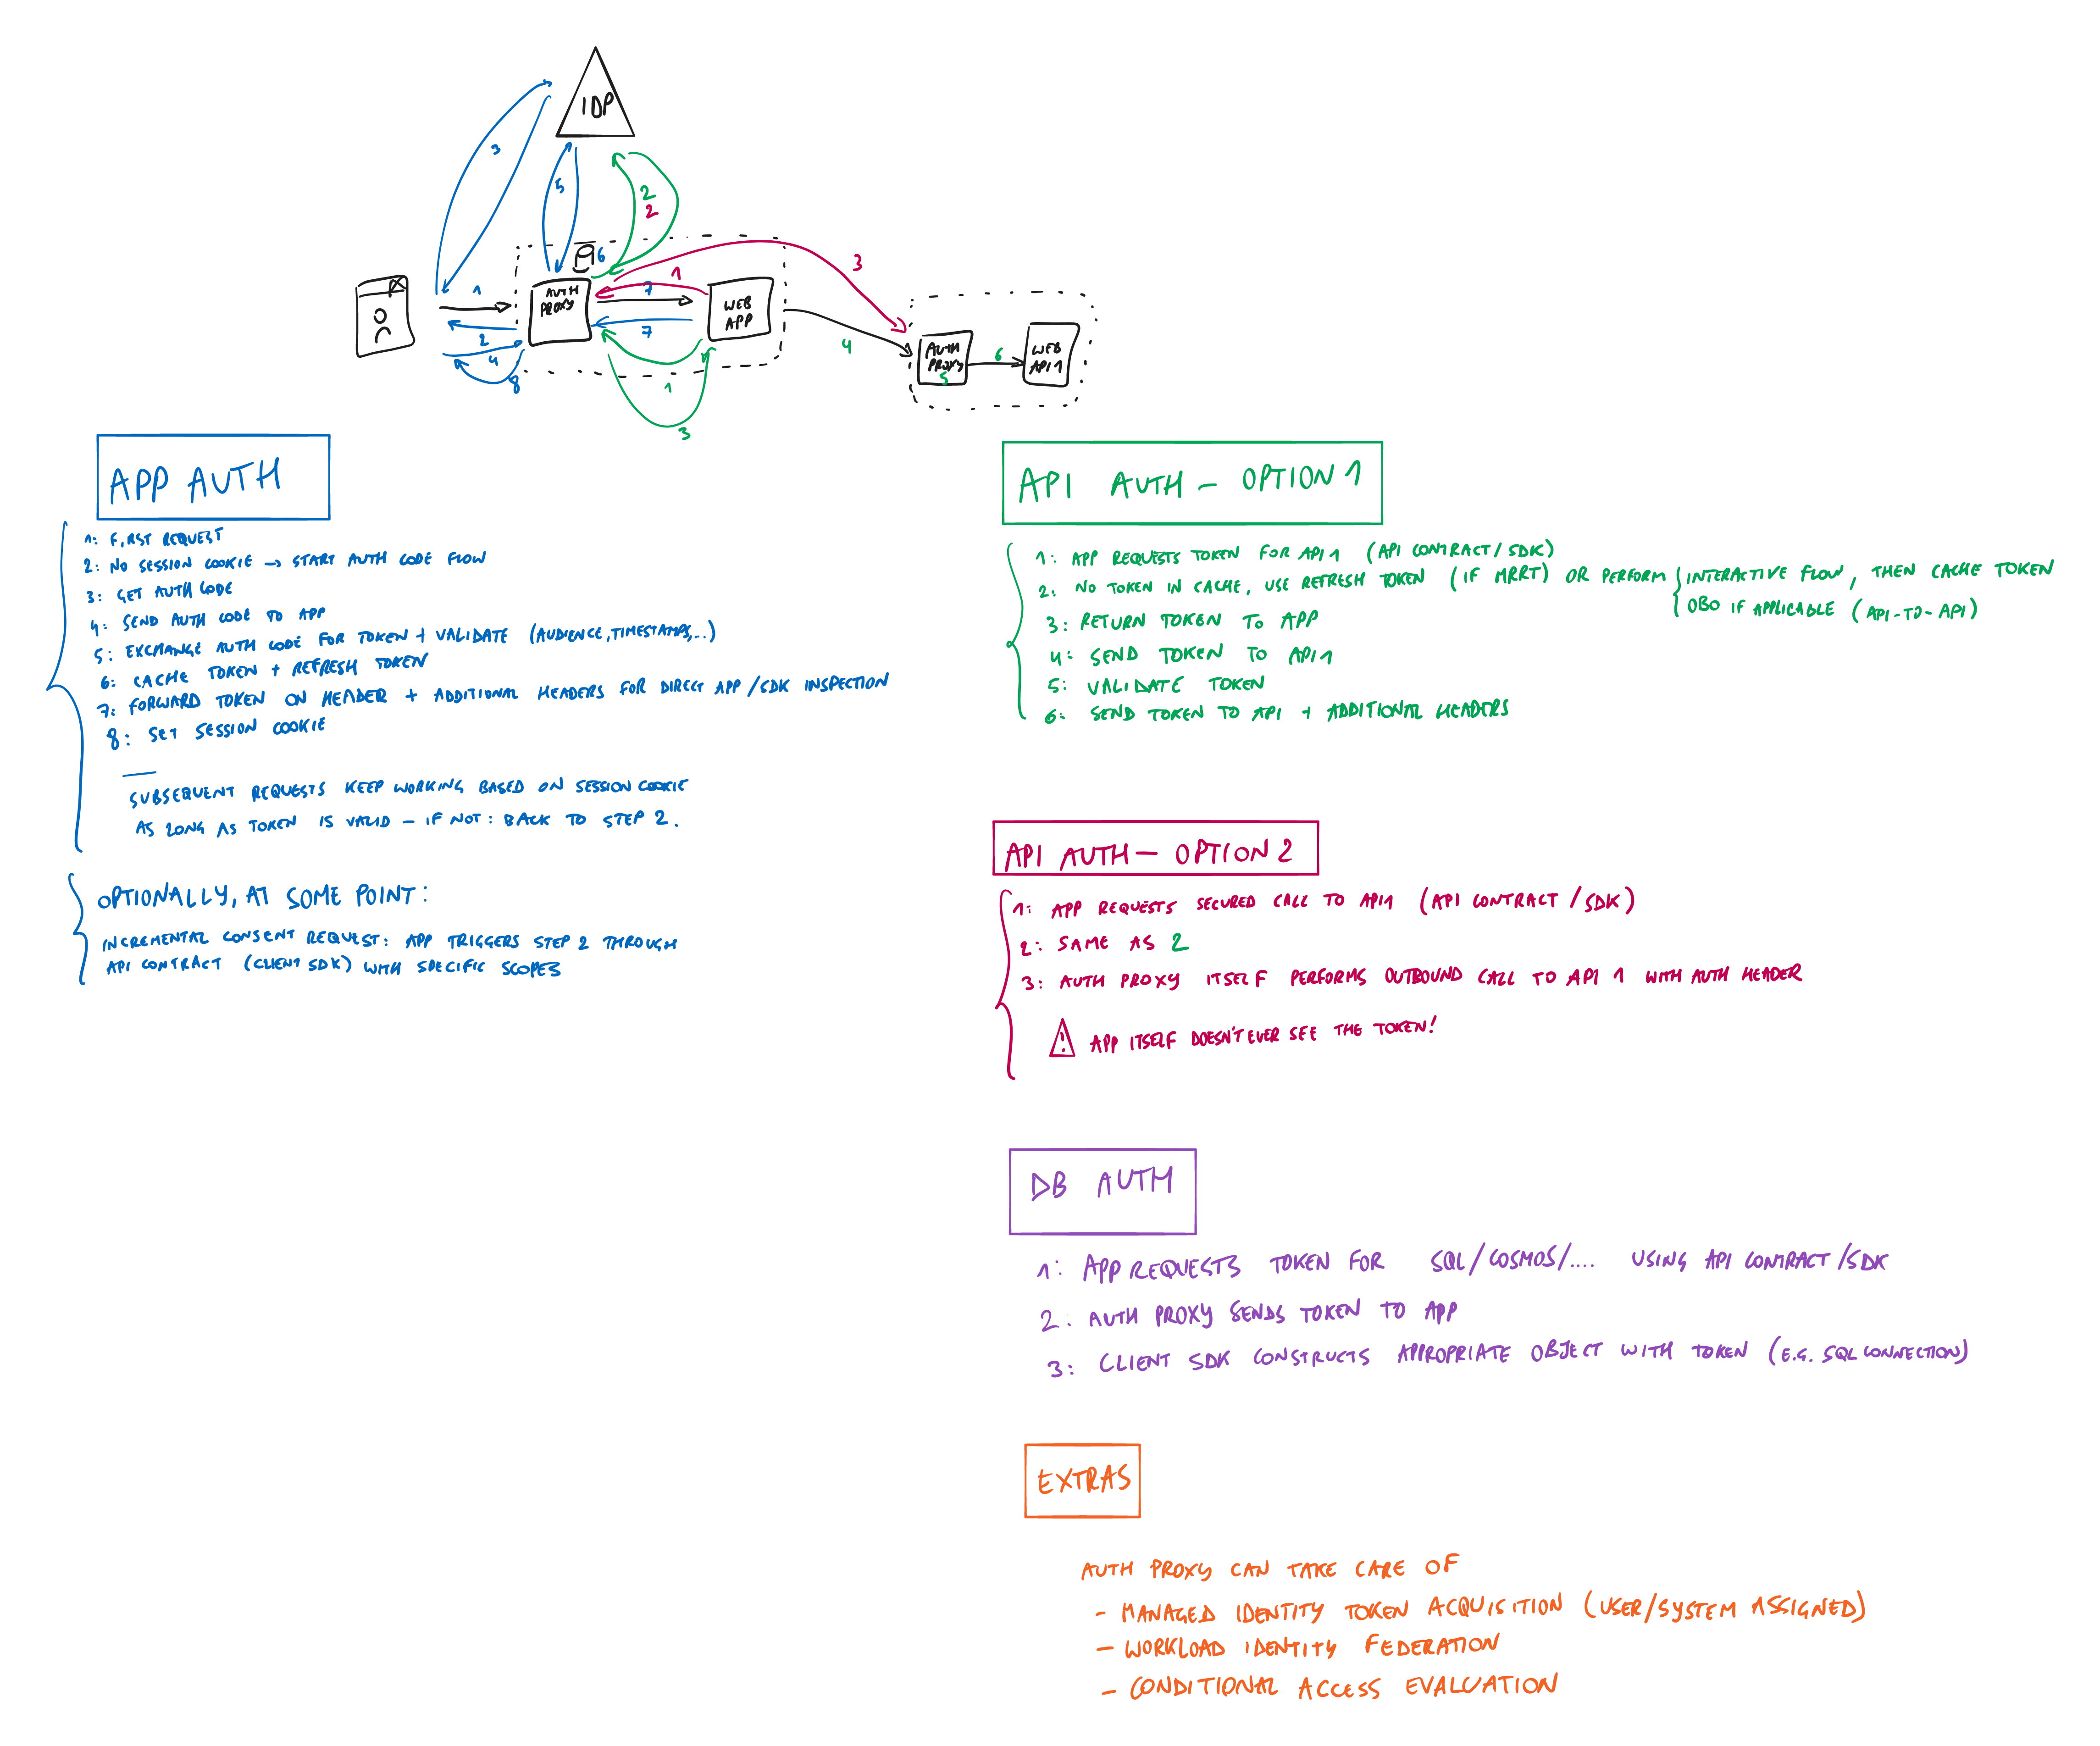 IDP
3
5
2
2
6
3
1
1
7
AUTH
PROXY
WEB
APP
7
2
4
8
1
3
4
AUTH
PROXY
5
6
WEB
API 1
APP AUTH
1: FIRST REQUEST
2: NO SESSION COOKIE → START AUTH CODE FLOW
3: GET AUTH CODE
4: SEND AUTH CODE TO APP
5: EXCHANGE AUTH CODE FOR TOKEN + VALIDATE (AUDIENCE, TIMESTAMPS, ...)
6: CACHE TOKEN + REFRESH TOKEN
7: FORWARD TOKEN ON HEADER + ADDITIONAL HEADERS FOR DIRECT APP/SDK INSPECTION
8: SET SESSION COOKIE
SUBSEQUENT REQUESTS KEEP WORKING BASED ON SESSION COOKIE
AS LONG AS TOKEN IS VALID – IF NOT: BACK TO STEP 2.
OPTIONALLY, AT SOME POINT:
INCREMENTAL CONSENT REQUEST: APP TRIGGERS STEP 2 THROUGH
API CONTRACT (CLIENT SDK) WITH SPECIFIC SCOPES
API AUTH – OPTION 1
1: APP REQUESTS TOKEN FOR API 1 (API CONTRACT/SDK)
2: NO TOKEN IN CACHE, USE REFRESH TOKEN (IF MRRT) OR PERFORM { INTERACTIVE FLOW, THEN CACHE TOKEN
OBO IF APPLICABLE (API-TO-API)
3: RETURN TOKEN TO APP
4: SEND TOKEN TO API 1
5: VALIDATE TOKEN
6: SEND TOKEN TO API + ADDITIONAL HEADERS
API AUTH – OPTION 2
1: APP REQUESTS SECURED CALL TO API 1 (API CONTRACT/SDK)
2: SAME AS 2
3: AUTH PROXY ITSELF PERFORMS OUTBOUND CALL TO API 1 WITH AUTH HEADER
! APP ITSELF DOESN'T EVER SEE THE TOKEN!
DB AUTH
1: APP REQUESTS TOKEN FOR SQL/COSMOS/.... USING API CONTRACT/SDK
2: AUTH PROXY SENDS TOKEN TO APP
3: CLIENT SDK CONSTRUCTS APPROPRIATE OBJECT WITH TOKEN (E.G. SQL CONNECTION)
EXTRAS
AUTH PROXY CAN TAKE CARE OF
- MANAGED IDENTITY TOKEN ACQUISITION (USER/SYSTEM ASSIGNED)
- WORKLOAD IDENTITY FEDERATION
- CONDITIONAL ACCESS EVALUATION